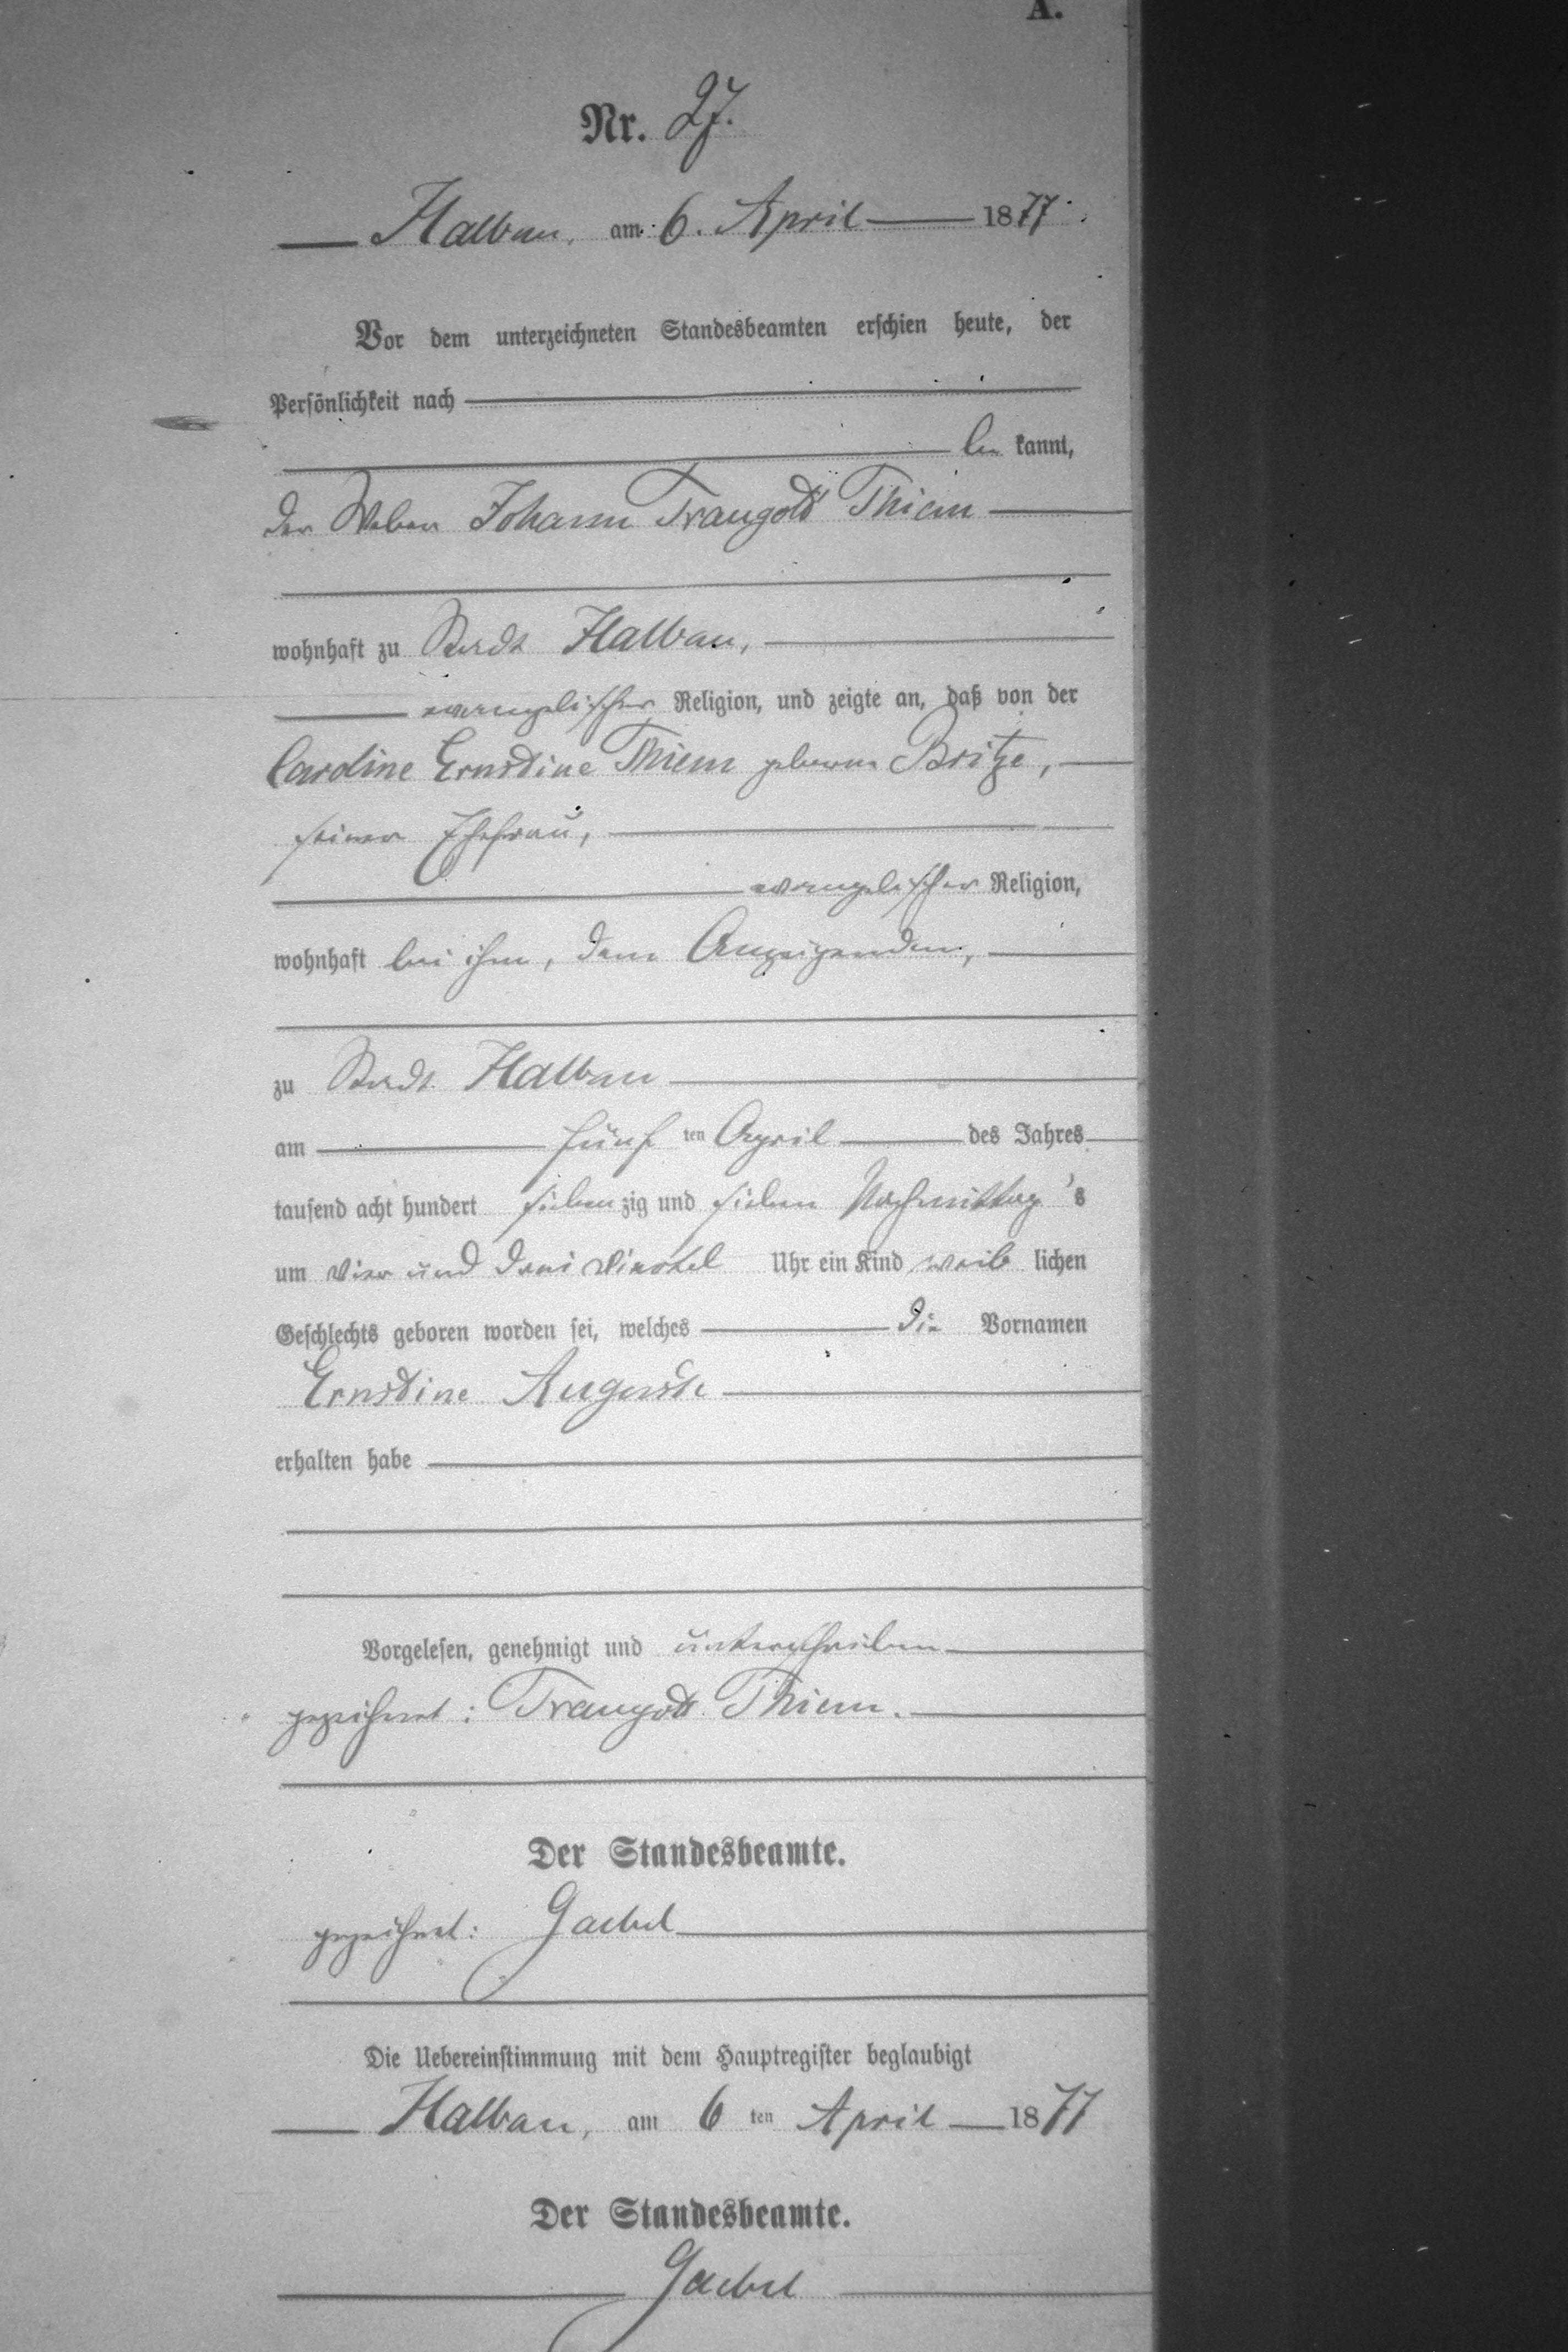 A.
Nr. 27.
Halbau, am 6. April 1877.
Vor dem unterzeichneten Standesbeamten erschien heute, der
Persönlichkeit nach
be kannt,
der Weber Johann Traugott Thiem
wohnhaft zu Stadt Halbau,
evangelischer Religion, und zeigte an, daß von der
Caroline Ernstine Thiem geborene Britze,
seiner Ehefrau,
evangelischer Religion,
wohnhaft bei ihm, dem Anzeigenden,
zu Stadt Halbau
am fünf ten April des Jahres
tausend acht hundert sieben zig und sieben Nachmittag 's
um vier und drei Viertel Uhr ein Kind weib lichen
Geschlechts geboren worden sei, welches die Vornamen
Ernstine Auguste
erhalten habe
Vorgelesen, genehmigt und unterschrieben
gezeichnet: Traugott Thiem.
Der Standesbeamte.
gezeichnet: Gaebel
Die Uebereinstimmung mit dem Hauptregister beglaubigt
Halbau, am 6 ten April 1877
Der Standesbeamte.
Gaebel